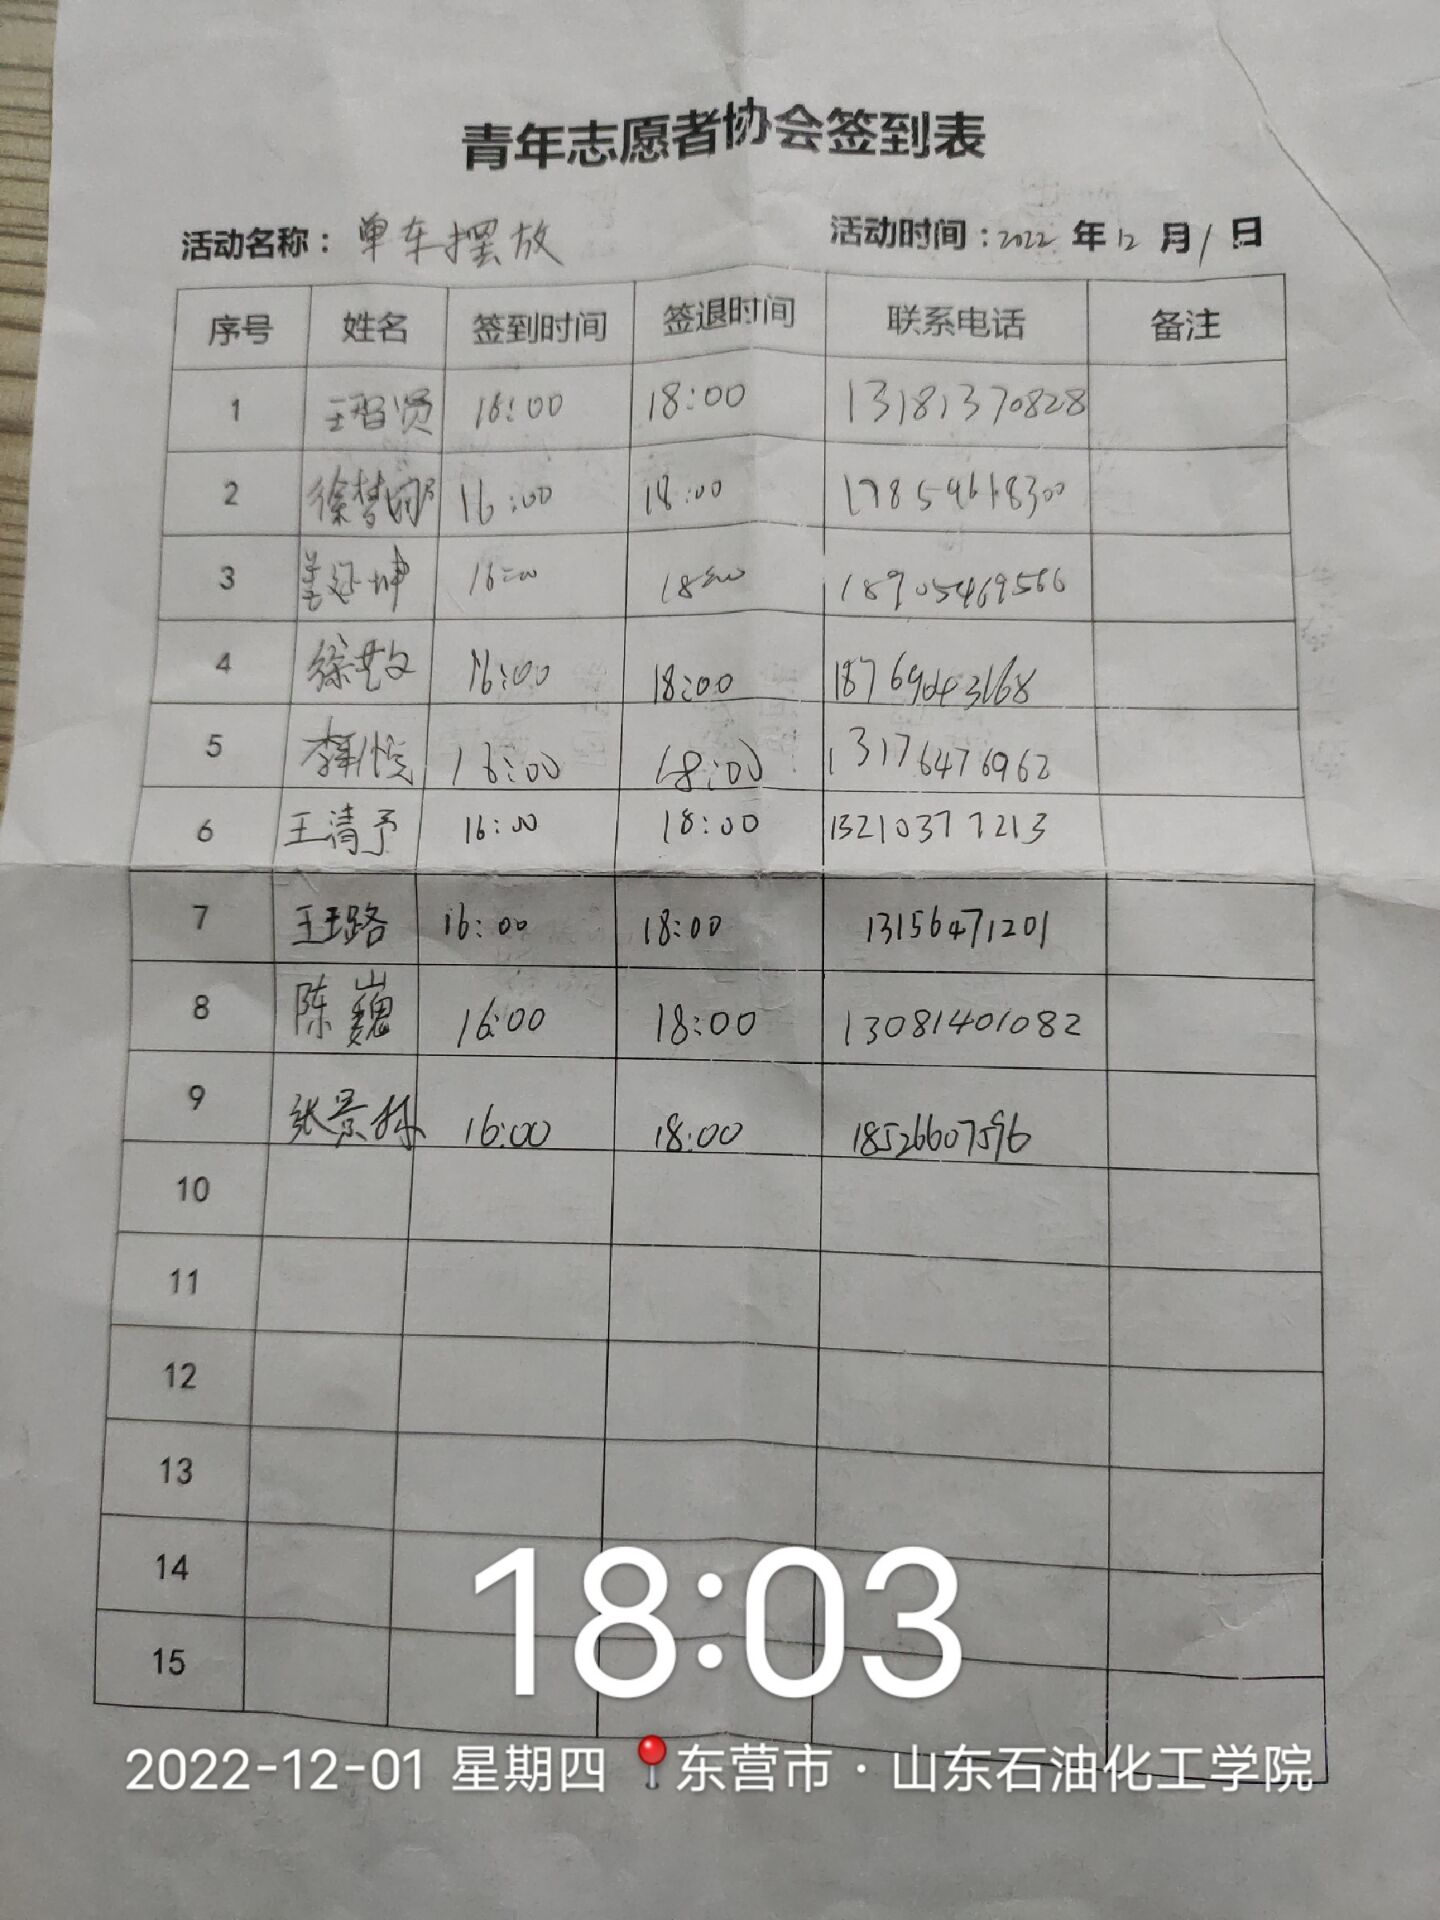 青年志愿者协会签到表
活动名称：单车摆放 活动时间：2022年12月1日
序号 姓名 签到时间 签退时间 联系电话 备注
1 王智贤 16:00 18:00 13181370828
2 徐梦 16:00 18:00 17859618300
3 姜延坤 16:00 18:00 18905469566
4 徐 16:00 18:00 18769043168
5 李 16:00 18:00 13176476962
6 王清予 16:00 18:00 13210377213
7 王玉路 16:00 18:00 13156471201
8 陈巍 16:00 18:00 13081401082
9 张景林 16:00 18:00 18526607596
10
11
12
13
14
15
18:03
2022-12-01 星期四 东营市·山东石油化工学院